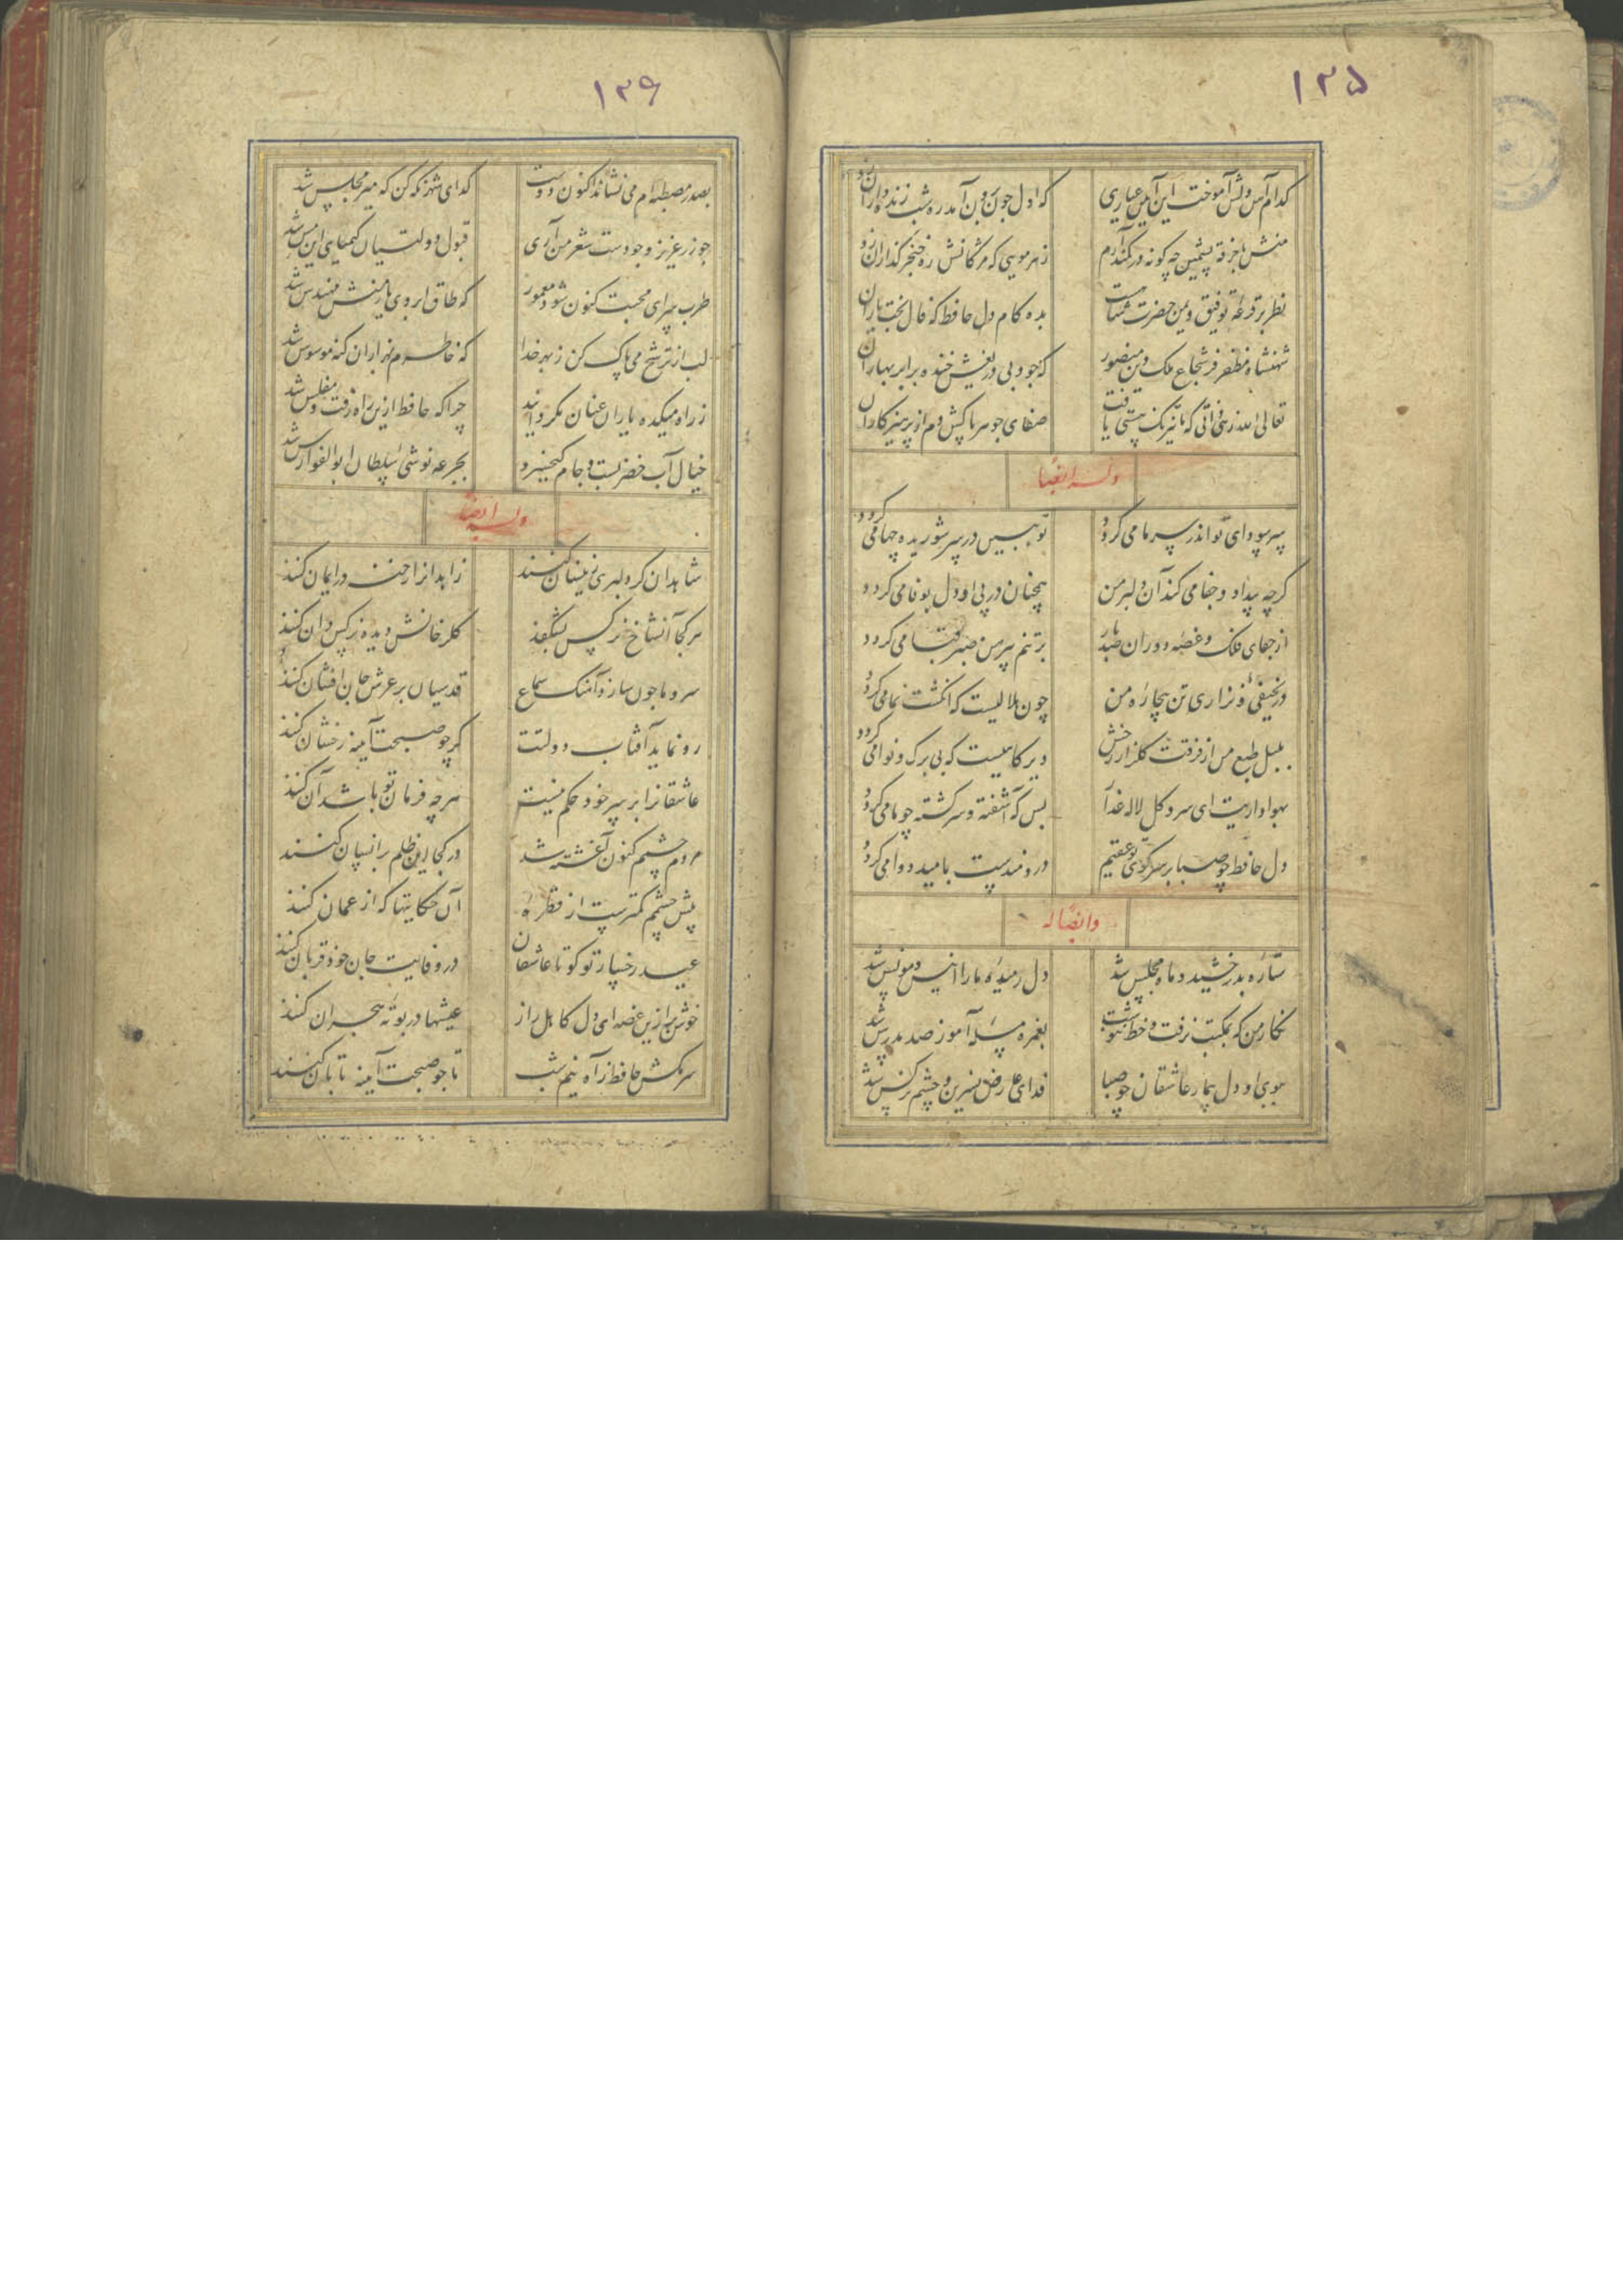 ۱۳۵
کدام آهن دلش آموخت این آیین عیاری
که اول چون برون آمد ره شب زنده داران زد
منش با خرقه پشمین چه کونه در کمند آرم
زهر مویی که مژکانش ره خنجر کذاران زد
نظر بر قرعه توفیق و یمن حضرت شماست
بده کام دل حافظ که فال بختیاران زد
شهنشاه مظفر فر شجاع ملک و دین منصور
که جود بی دریغش خنده بر ابر بهاران زد
تعالی الله زهی ذاتی که تا نیرنک هستی یافت
صفای جوهر پاکش دم از پرهیزکاران زد
وله ایضا
سر سودای تو اندر سر ما می کردد
تو ببین در سر شوریده چها می کردد
کرچه بیداد و جفا می کند آن دلبر من
همچنان در پی او دل بوفا می کردد
از جفای فلک و غصه دوران صد بار
بر تنم پیرهن صبر قبا می کردد
در نحیفی و نزاری تن بیچاره من
چون هلالیست که انکشت نما می کردد
بلبل طبع من از فرقت کلزار رخش
دیرکاهیست که بی برک و نوا می کردد
بهواداریت ای سرو کل لاله عذار
بس که آشفته و سرکشته چو ما می کردد
دل حافظ چو صبا بر سر کوی تو مقیم
دردمندیست بامید دوا می کردد
وایضا له
ستاره بدرخشید و ماه مجلس شد
دل رمیده ما را انیس و مونس شد
نکار من که بمکتب نرفت و خط ننوشت
بغمزه مسله آموز صد مدرس شد
ببوی او دل بیمار عاشقان چو صبا
فدای عارض نسرین و چشم نرکس شد
۱۳۶
بصدر مصطبه ام می نشاند اکنون دوست
کدای شهر نکه کن که میر مجلس شد
چو زر عزیز وجودست شعر من آری
قبول دولتیان کیمیای این مس شد
طرب سرای محبت کنون شود معمور
که طاق ابروی یار منش مهندس شد
لب از ترشح می پاک کن ز بهر خدا
که خاطرم بهزاران کنه موسوس شد
ز راه میکده یاران عنان بکردانید
چرا که حافظ ازین راه رفت و مفلس شد
خیال آب خضر بست و جام کیخسرو
بجرعه نوشی سلطان ابوالفوارس شد
وله ایضا
شاهدان کر دلبری زینسان کنند
زاهدانرا رخنه در ایمان کنند
هر کجا آن شاخ نرکس بشکفد
کلرخانش دیده نرکس دان کنند
سرو ما چون سازد آهنک سماع
قدسیان بر عرش جان افشان کنند
رو نماید آفتاب دولتت
کر چو صبحت آینه رخشان کنند
عاشقانرا بر سر خود حکم نیست
هرچه فرمان تو باشد آن کنند
مردم چشم کنون آغشته شد
در کجا این ظلم بر انسان کنند
پیش چشم کمترست از قطره
آن حکایتها که از عمان کنند
عید رخسار تو کو تا عاشقان
در وفایت جان خود قربان کنند
خوش برا از غصه ای دل کاهل راز
عیشها در بوته هجران کنند
سر مکش حافظ ز آه نیم شب
تا چو صبحت آینه تابان کنند